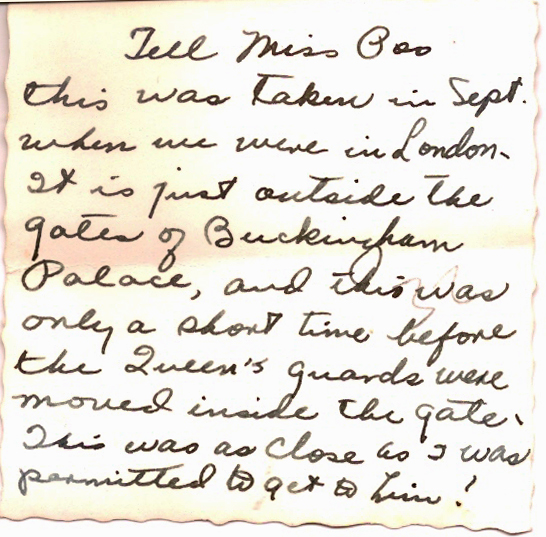 Tell Miss Boo
this was taken in Sept.
when we were in London-
It is just outside the
gates of Buckingham
Palace, and this was
only a short time before
the Queen's guards were
moved inside the gate.
This was as close as I was
permitted to get to him!